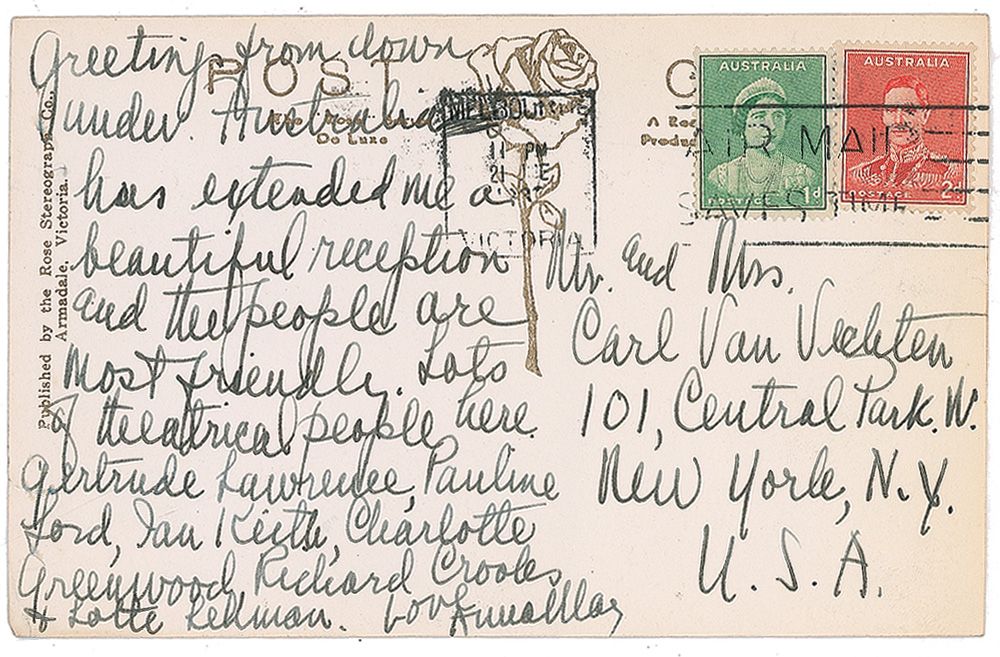 Greetings from down
under. Australia
has extended me a
beautiful reception
and the people are
most friendly. Lots
of theatrical people here.
Gertrude Lawrence, Pauline
Lord, Ian Keith, Charlotte
Greenwood, Richard Crooks
& Lotte Lehman. Love Anna May
Mr. and Mrs.
Carl Van Vechten
101, Central Park. W.
New York, N.Y.
U.S.A.
POST C
The
De Luxe
A
Produ
Published by the Rose Stereograph Co.,
Armadale, Victoria.
MELBOU
11 PM
21
VICTORIA
AIR MAIL
SAVES TIME
AUSTRALIA
POSTAGE 1d
AUSTRALIA
POSTAGE 2